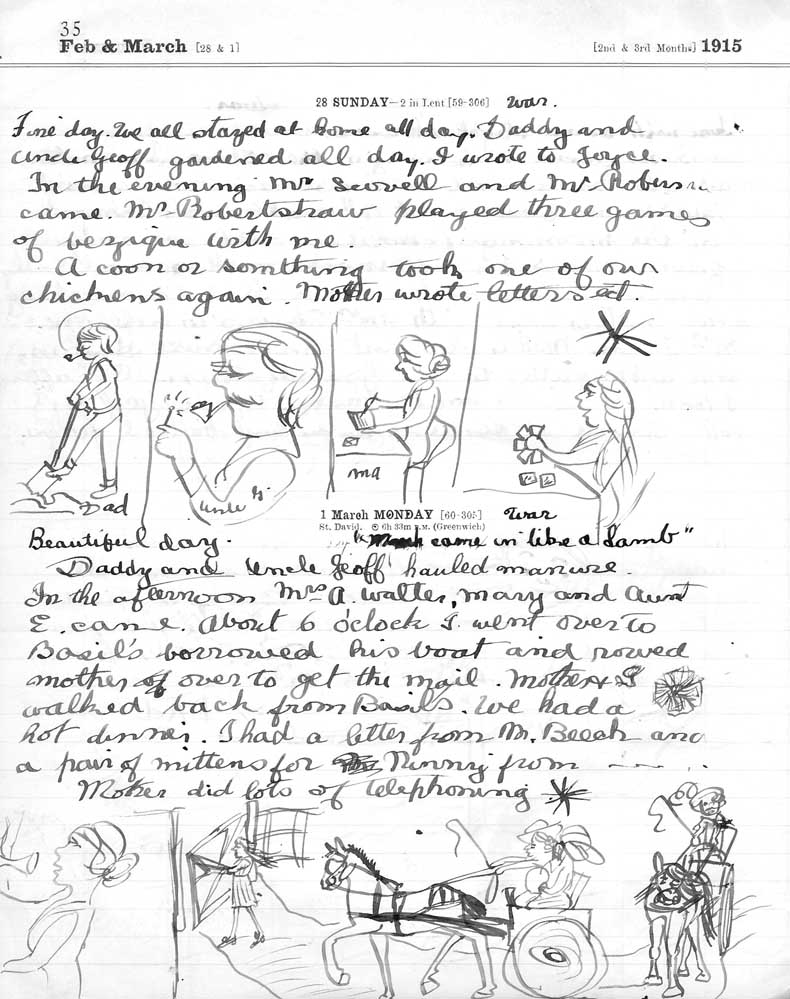 35
Feb & March [28 & 1] [2nd & 3rd Months] 1915
28 SUNDAY—2 in Lent [59-306] War.
Fine day. We all stayed at home all day. Daddy and
Uncle Geoff gardened all day. I wrote to Joyce.
In the evening Mr Scovell and Mr Roberts
came. Mr Robertshaw played three games
of bezique with me.
A coon or somthing took one of our
chickens again. Mother wrote letters ect.
Dad
Uncle G.
ma
1 March MONDAY [60-305] War
St. David. 6h 33m P.M. (Greenwich)
Beautiful day. "March came in like a Lamb"
Daddy and Uncle Geoff hauled manure.
In the afternoon Mrs A. Walter, Mary and Aunt
E. came. About 6 o'clock I went over to
Basil's borrowed his boat and rowed
mother over to get the mail. Mother & I
walked back from Basils. We had a
hot dinner. I had a letter from M. Beech and
a pair of mittens for Ninny from
Mother did lots of telephoning